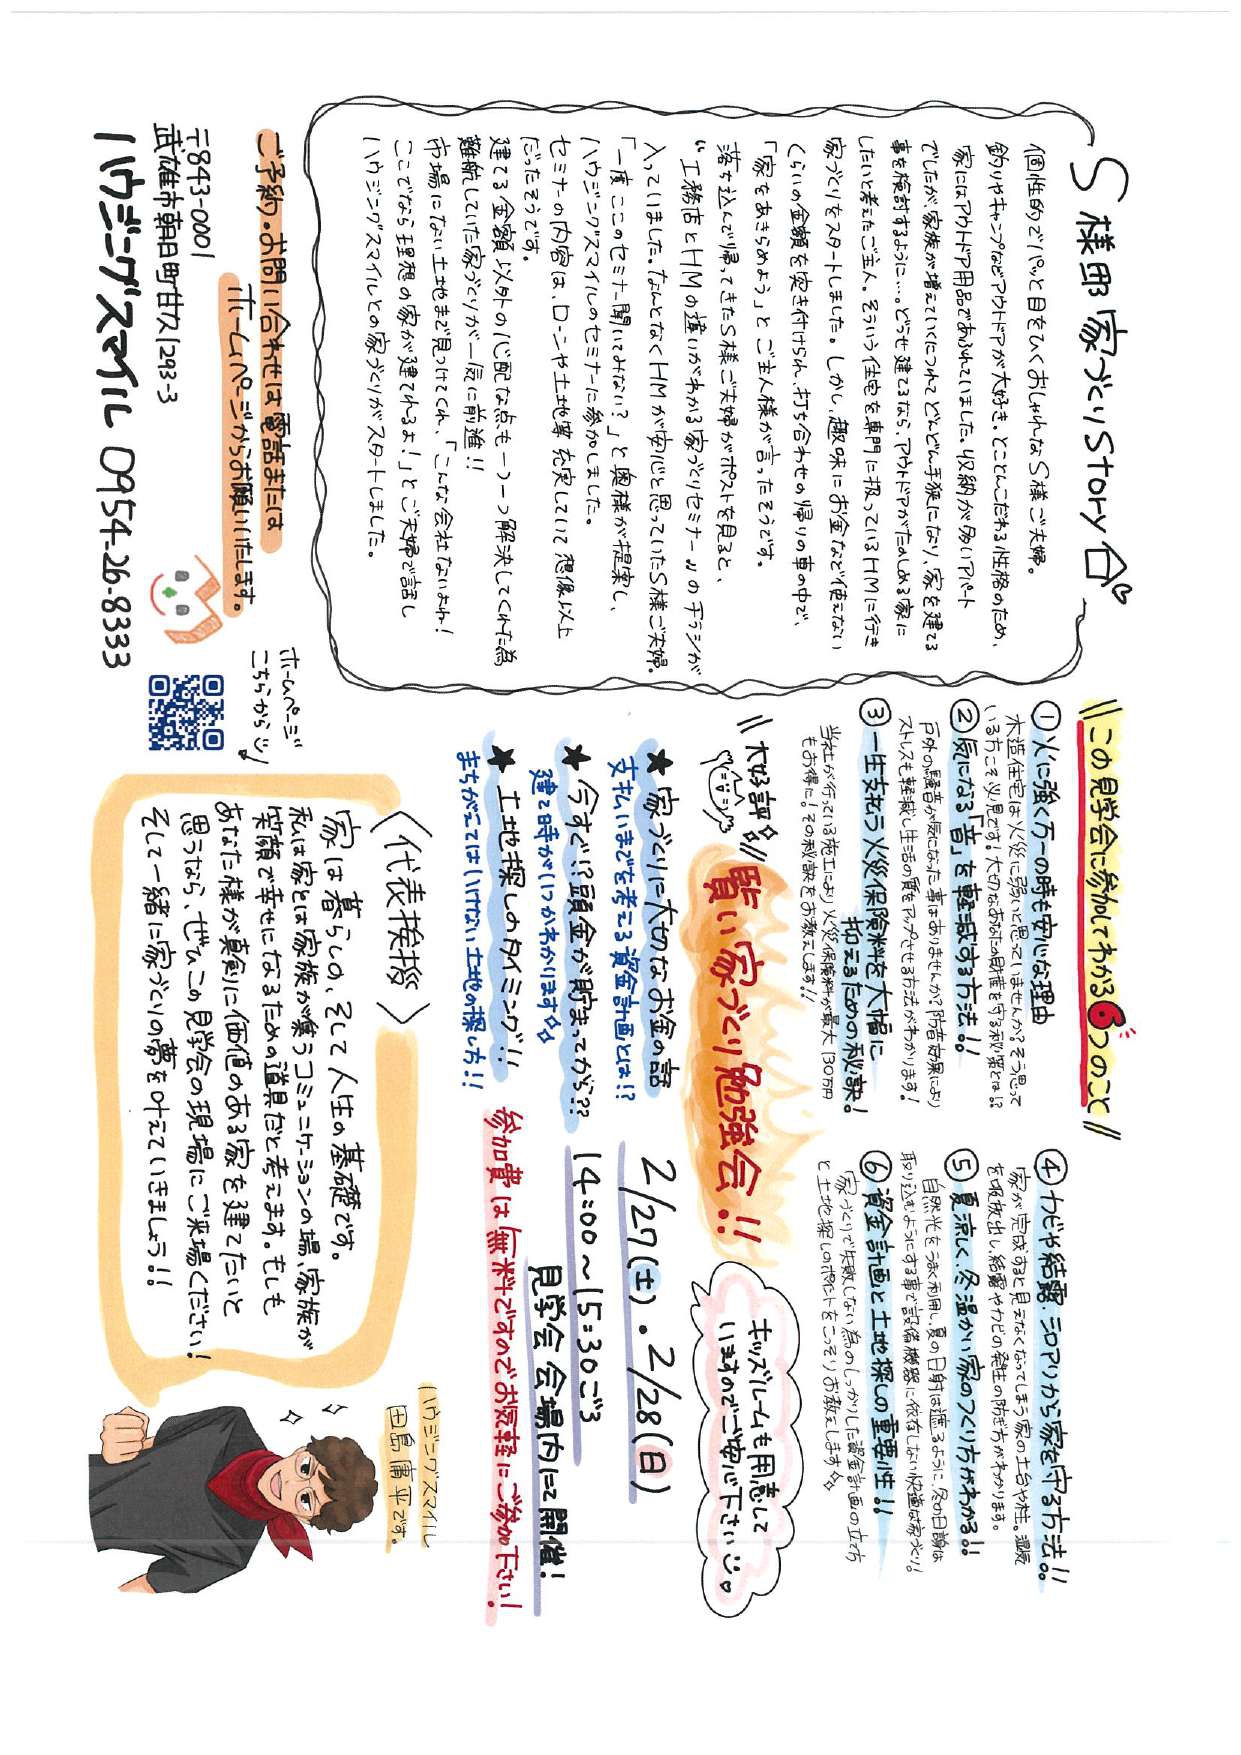 S様邸 家づくりStory
個性的でパッと目をひくおしゃれなS様ご夫婦。
釣りやキャンプなどアウトドアが大好き。とことんこだわる性格のため、
家にはアウトドア用品であふれていました。収納が多いアパート
でしたが家族が増えていくにつれてどんどん手狭になり、家を建てる
事を検討するように…。どうせ建てるなら、アウトドアがたのしめる家に
したいと考えたご主人。そういう住宅を専門に扱っているHMに行き
家づくりをスタートしました。しかし、趣味にお金など使えない
くらいの金額を突き付けられ、打ち合わせの帰りの車の中で、
「家をあきらめよう」とご主人様が言ったそうです。
落ち込んで帰ってきたS様ご夫婦がポストを見ると、
“工務店とHMの違いがわかる家づくりセミナー〟のチラシが
入っていました。なんとなくHMが安心と思っていたS様ご夫婦。
「一度ここのセミナー聞いてみない?」と奥様が提案し、
ハウジングスマイルのセミナーに参加しました。
セミナの内容は、ローンや土地等充実していて想像以上
だったそうです。
建てる金額以外の心配な点も一つ一つ解決してくれた為
難航していた家づくりが一気に前進!!
市場にない土地まで見つけてくれ、「こんな会社ないよね!
ここでなら理想の家が建てれるよ!」とご夫婦で話し
ハウジングスマイルとの家づくりがスタートしました。
ご予約・お問い合わせは電話または
ホームページからお願いいたします。
〒843-0001
武雄市朝日町甘久1293-3
ハウジングスマイル 0954-26-8333
ホームページ
こちらから
この見学会に参加してわかる6つのこと
①火に強く万一の時も安心な理由
木造住宅は火災に弱いと思っていませんか?そう思って
いる方こそ必見です!大切なあなたの財産を守る秘策とは!?
②気になる「音」を軽減する方法!!
戸外の騒音が気になった事はありませんか?防音効果により
ストレスも軽減し生活の質をアップさせる方法がわかります!
③一生支払う火災保険料を大幅に
抑えるための秘訣!
当社が行っている施工により火災保険料が最大130万円
もお得に!その秘訣をお教えします!!
④カビや結露、シロアリから家を守る方法!!
家が完成すると見えなくなってしまう家の土台や柱。湿気
を吸放出し、結露やカビの発生の防ぎ方がわかります。
⑤夏涼しく、冬温かい家のつくり方がわかる!!
自然光をうまく利用し、夏の日射は遮るように、冬の日射は
取り込むようにする事で設備機器に依存しない快適な家づくり!
⑥資金計画と土地探しの重要性!!
家づくりで失敗しない為のしっかりした資金計画の立て方
と土地探しのポイントをこっそりお教えします☆
大好評
賢い家づくり勉強会!!
キッズルームも用意して
いますのでご安心下さい
★家づくりに大切なお金の話
支払いまでを考える資金計画とは!?
★今すぐ!?頭金が貯まってから??
建て時がいつかわかります☆
★土地探しのタイミング!!
まちがえてはいけない土地の探し方!!
2/27(土)・2/28(日)
14:00〜15:30ごろ
見学会会場内にて開催!
参加費は無料ですのでお気軽にご参加下さい!
〈代表挨拶〉
家は暮らしの、そして人生の基礎です。
私は家とは家族が集うコミュニケーションの場、家族が
笑顔で幸せになるための道具だと考えます。もしも
あなた様が真剣に価値のある家を建てたいと
思うなら、ぜひこの見学会の現場にご来場ください!
そして一緒に家づくりの夢を叶えていきましょう!!
ハウジングスマイル
田島庸平です。